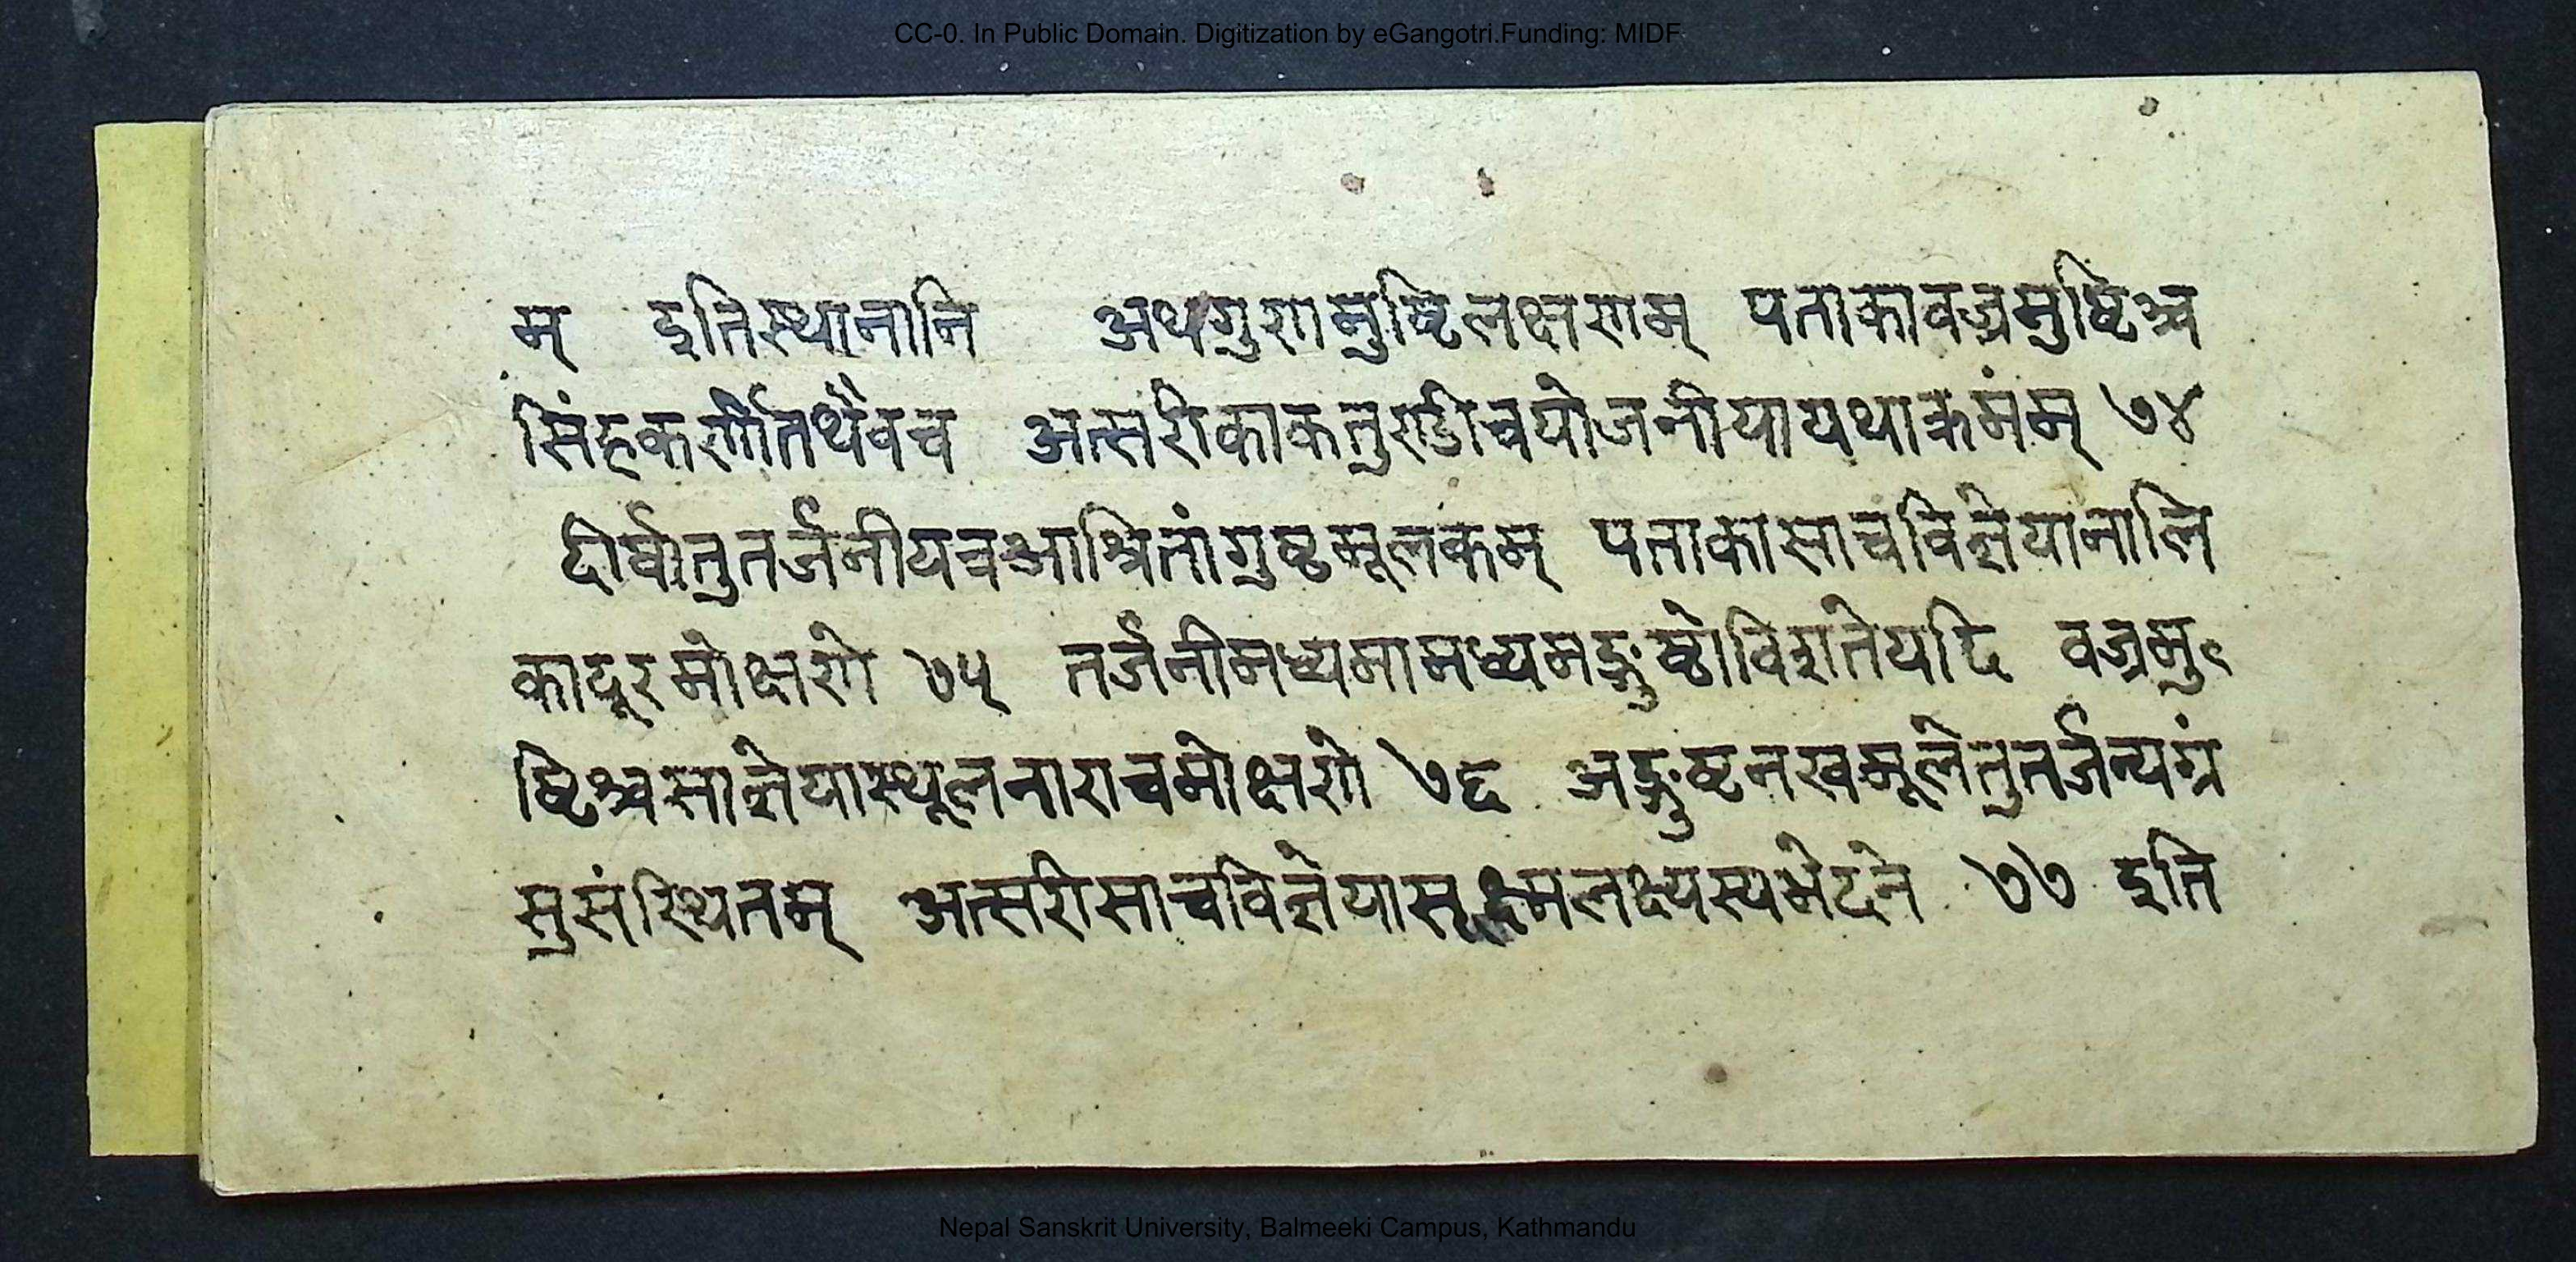 CC-0. In Public Domain. Digitization by eGangotri.Funding: MIDF
म् इतिस्थानानि अथगुणमुष्टिलक्षणम् पताकावज्रमुष्टिश्च
सिंहकर्णीतथैवच अत्सरीकाकतुण्डीचयोजनीयायथाक्रमंम् ७४
दीर्घातुतर्जनीयत्रआश्रितांगुष्ठमूलकम् पताकासाचविज्ञेयानालि
कादूरमोक्षणे ७५ तर्जनीमध्यमामध्यमङ्गुष्ठोविशतेयदि वज्रमु
ष्टिश्चसाज्ञेयास्थूलनाराचमोक्षणे ७६ अङ्गुष्ठनखमूलेतुतर्जन्यग्रं
सुसंस्थितम् अत्सरीसाचविज्ञेयासूक्ष्मलक्ष्यस्यभेदने ७७ इति
Nepal Sanskrit University, Balmeeki Campus, Kathmandu